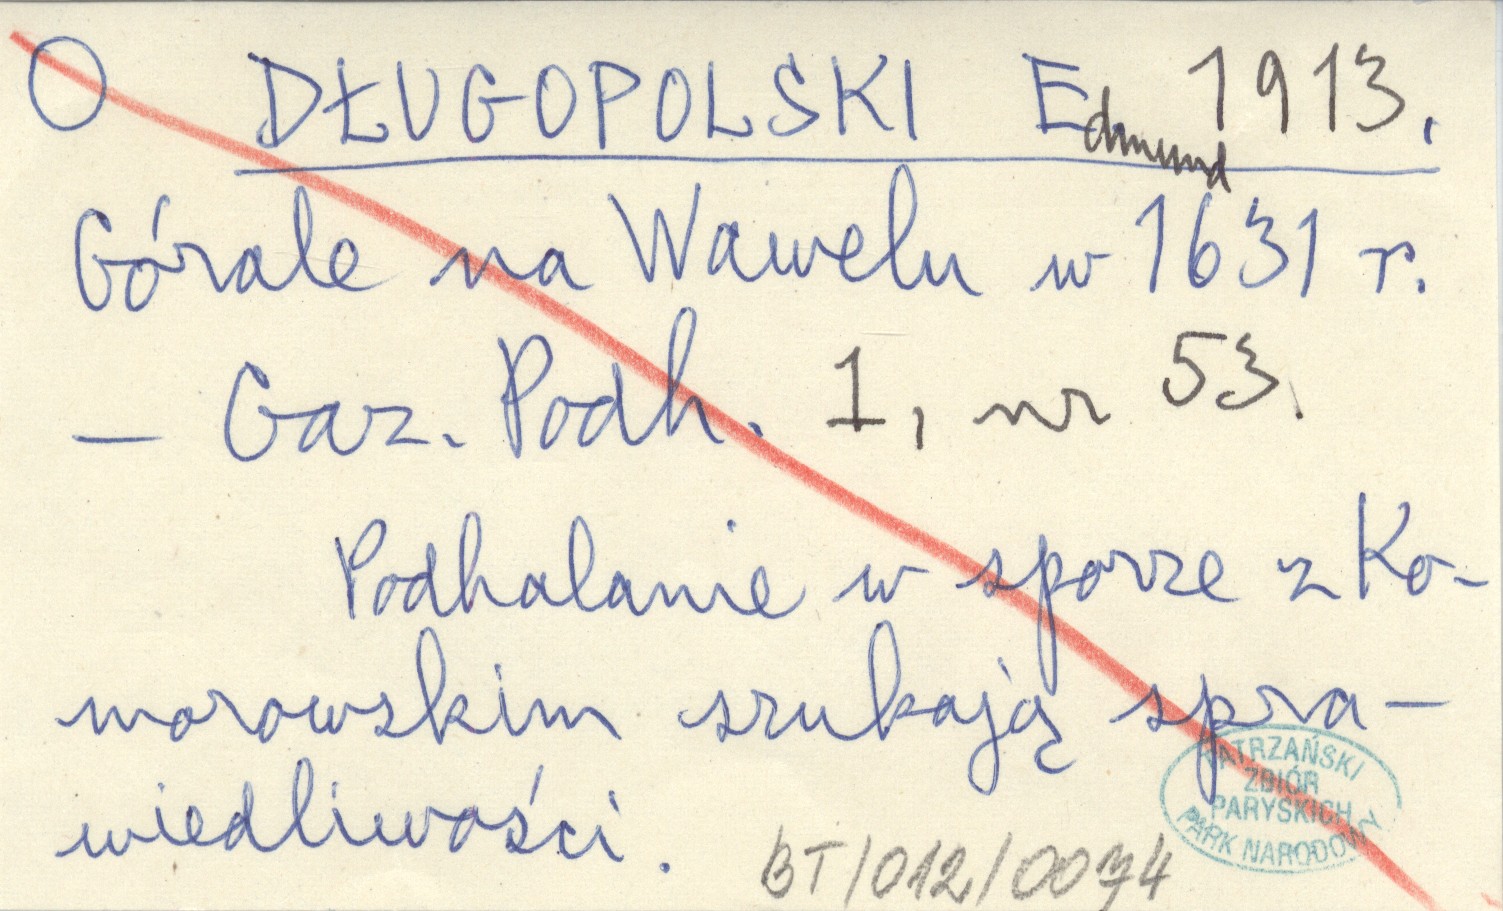 O DŁUGOPOLSKI Edmund 1913.
Górale na Wawelu w 1631 r.
– Gaz. Podh. 1, nr 53.
Podhalanie w sporze z Ko-
morowskim szukają spra-
wiedliwości.
TATRZAŃSKI
ZBIÓR
PARYSKICH
PARK NARODOWY
BT/012/0074